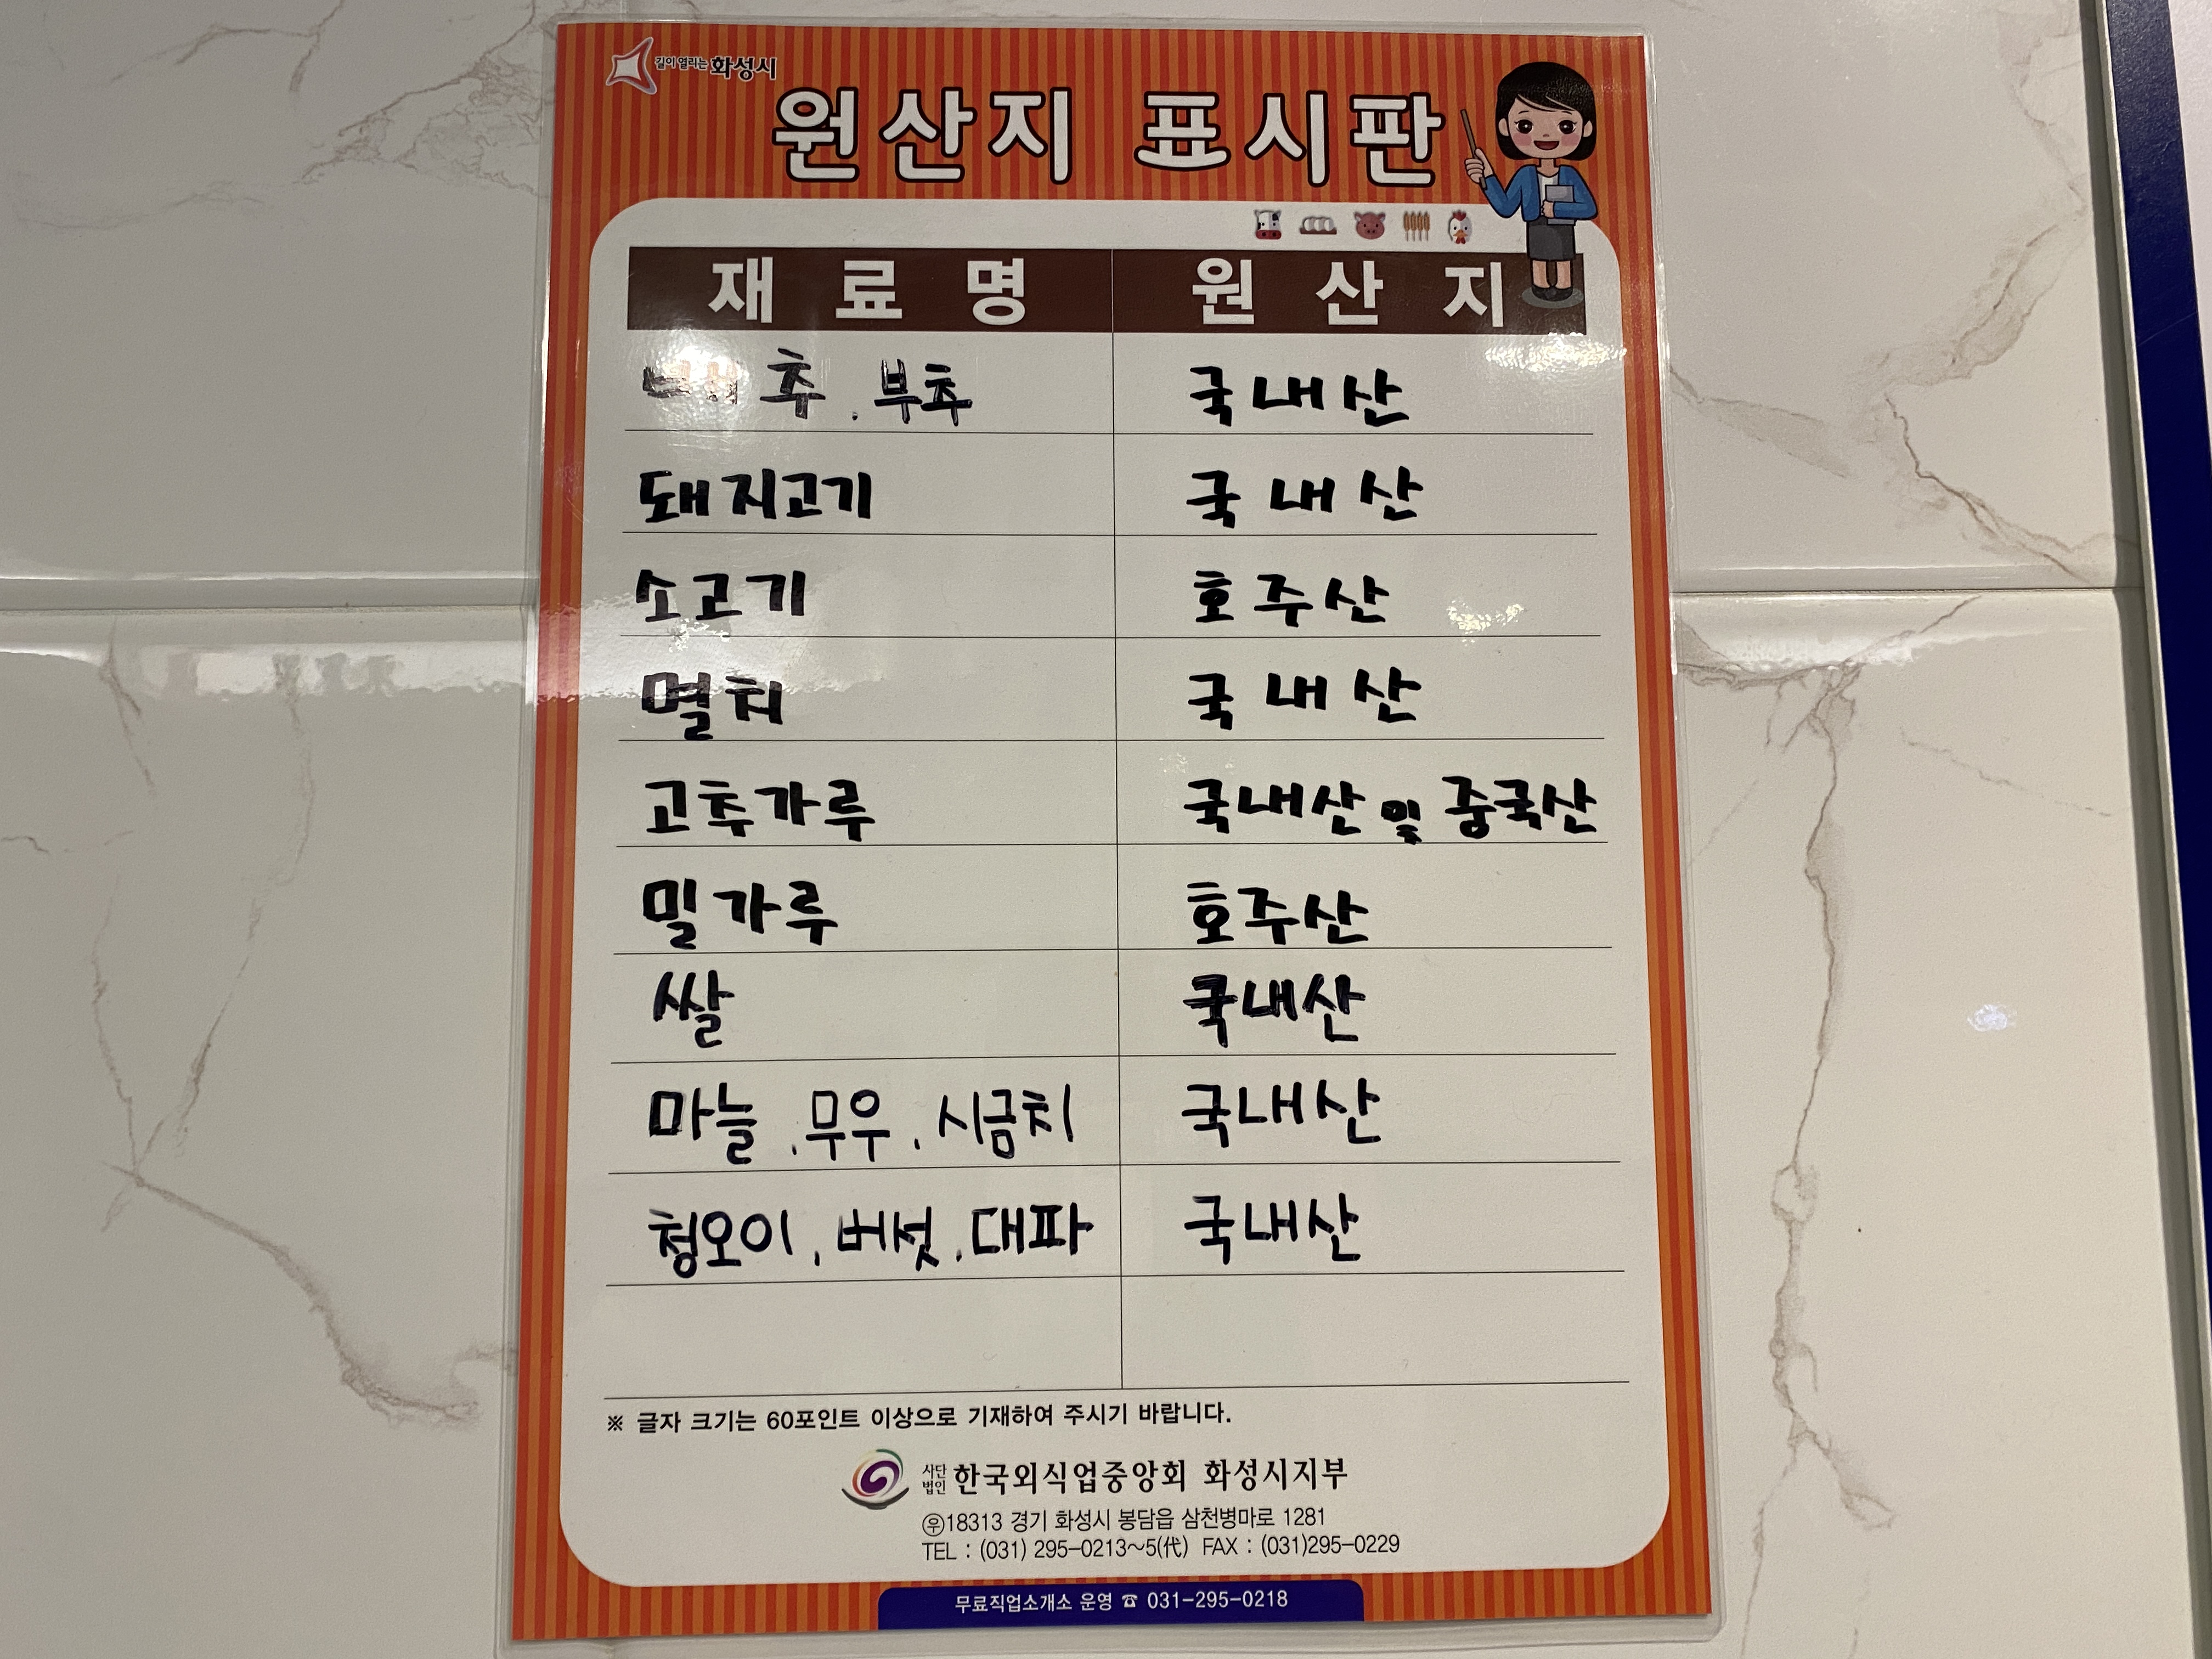 길이 열리는 화성시
원산지 표시판
재료명 원산지
배추, 부추 국내산
돼지고기 국내산
소고기 호주산
멸치 국내산
고추가루 국내산 및 중국산
밀가루 호주산
쌀 국내산
마늘, 무우, 시금치 국내산
청오이, 버섯, 대파 국내산
※ 글자 크기는 60포인트 이상으로 기재하여 주시기 바랍니다.
사단법인 한국외식업중앙회 화성시지부
㉾18313 경기 화성시 봉담읍 삼천병마로 1281
TEL : (031) 295-0213~5(代) FAX : (031)295-0229
무료직업소개소 운영 ☎ 031-295-0218